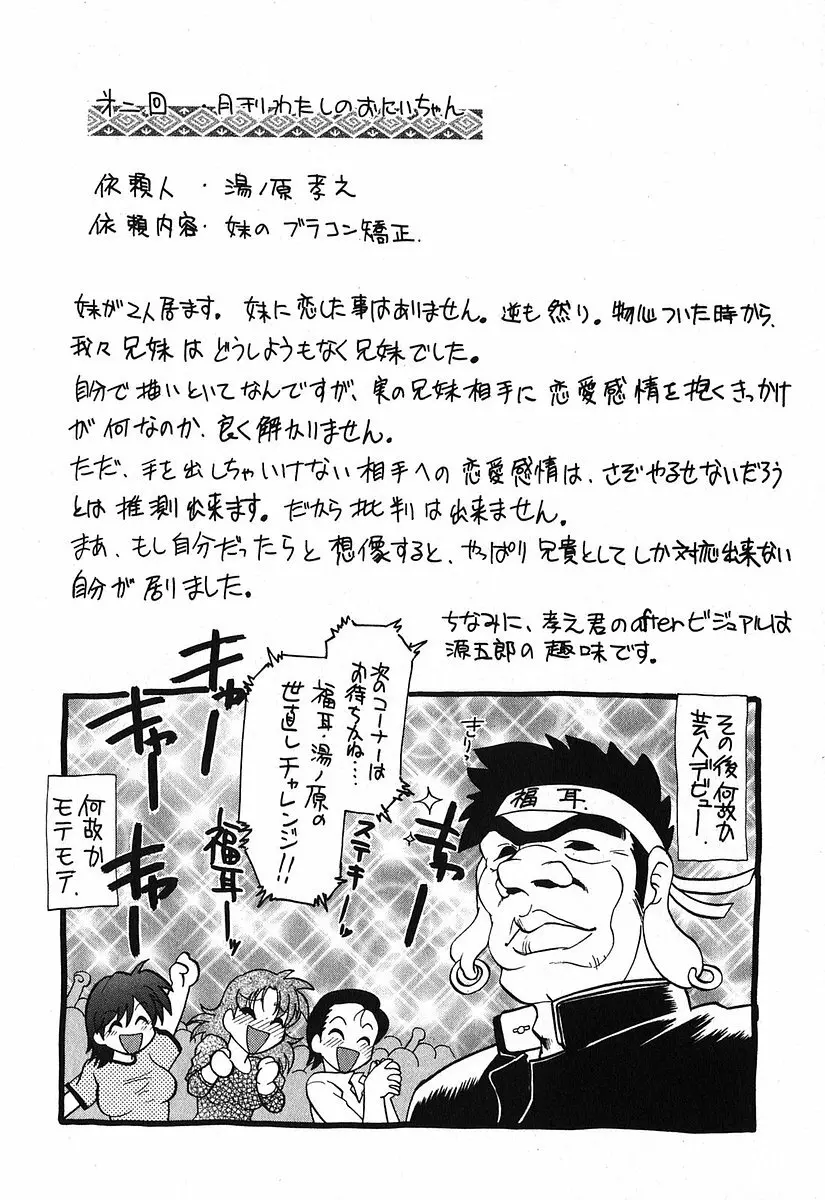 第二回 ・月刊わたしのおにいちゃん
依頼人・湯ノ原孝之
依頼内容・妹のブラコン矯正.
妹が2人居ます。妹に恋した事はありません。逆も然り。物心ついた時から、
我々兄妹はどうしようもなく兄妹でした。
自分で描いといてなんですが、実の兄妹相手に恋愛感情を抱くきっかけ
が何なのか、良く解かりません。
ただ、手を出しちゃいけない相手への恋愛感情は、さぞやるせないだろう
とは推測出来ます。だから批判は出来ません。
まあ、もし自分だったらと想像すると、やっぱり兄貴としてしか対応出来ない
自分が居りました。
ちなみに、孝之君のafterビジュアルは
源五郎の趣味です。
その後何故か
芸人デビュー.
きりっ
福耳.
次のコーナーは
お待ちかね…
福耳・湯ノ原の
世直しチャレンジ!!
キャー
キャー
キャー
キャー
ステキー
福耳ー
何故か
モテモテ.